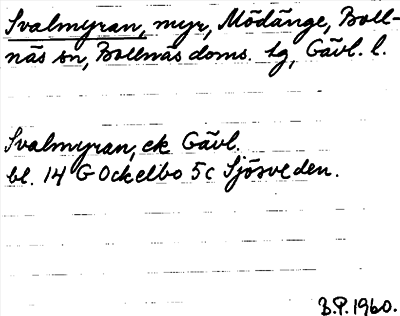 Svalmyran, myr, Mödänge, Boll-
näs sn, Bollnäs doms. tg, Gävl. l.
Svalmyran, ek Gävl.
bl. 14 G Ockelbo 5c Sjösveden.
B.P. 1960.